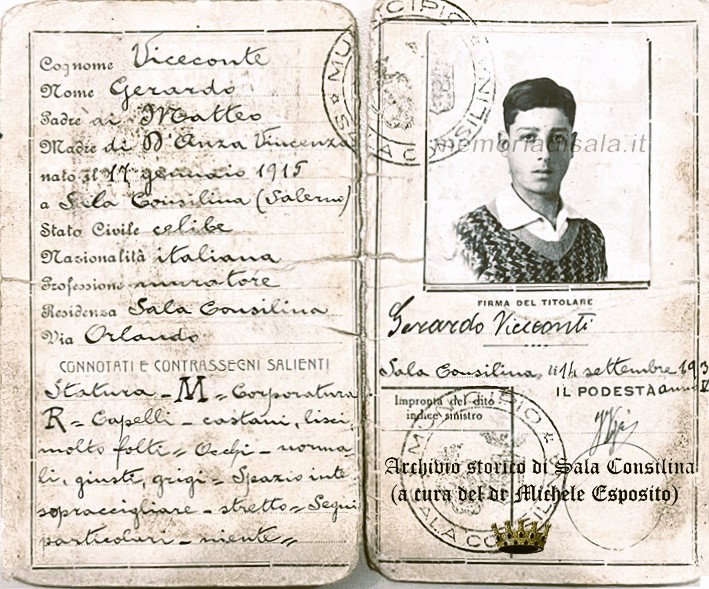 Cognome Viceconte
Nome Gerardo
Padre di Matteo
Madre di D'Anza Vincenza
nato il 17 gennaio 1915
a Sala Consilina (Salerno)
Stato Civile celibe
Nazionalità italiana
Professione muratore
Residenza Sala Consilina
Via Orlando
CONNOTATI E CONTRASSEGNI SALIENTI
Statura - M = Corporatura
R = Capelli - castani, lisci,
molto folti = Occhi - norma-
li, giusti, grigi = Spazio inte
sopraccigliare - stretto = Segni
particolari - niente =
MUNICIPIO
SALA CONSILINA
memoriadisala.it
FIRMA DEL TITOLARE
Gerardo Vicconti
Sala Consilina, li 14 settembre 193
IL PODESTÀ anno
Impronta del dito
indice sinistro
MUNICIPIO
SALA CONSILINA
Archivio storico di Sala Consilina
(a cura del dr Michele Esposito)